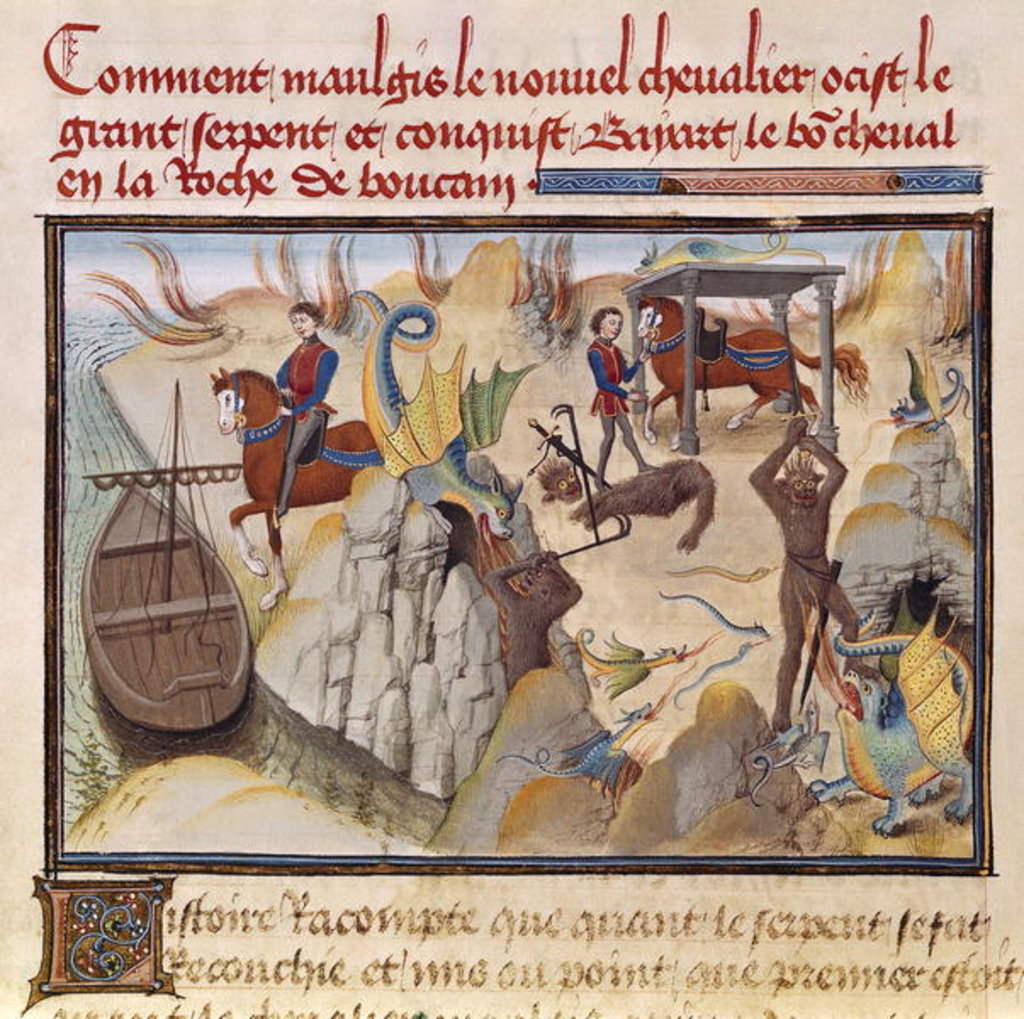 Comment maulgis le nouuel cheualier ocist le
grant serpent et conquist Bayart le bõ cheual
en la Roche de boucam
istoire Racompte que quant le serpent se fut
Reconchie et mis ou point que premier estoit